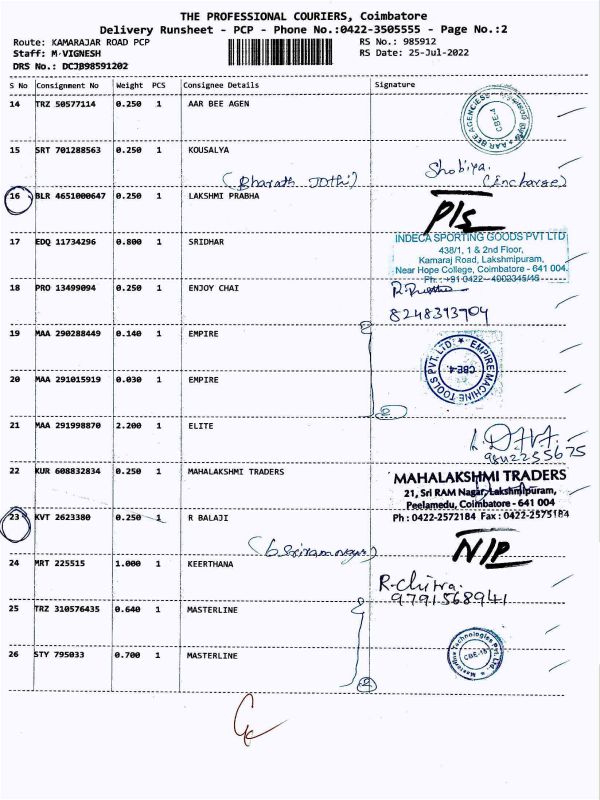 THE PROFESSIONAL COURIERS, Coimbatore
Delivery Runsheet - PCP - Phone No.:0422-3505555 - Page No.:2
Route: KAMARAJAR ROAD PCP RS No.: 985912
Staff: M.VIGNESH RS Date: 25-Jul-2022
DRS No.: DCJB98591202
S No Consignment No Weight PCS Consignee Details Signature
14 TRZ 50577114 0.250 1 AAR BEE AGEN
AAR BEE AGENCIES CBE-4
15 SRT 701288563 0.250 1 KOUSALYA
(Bharath Jothi) Shobiya. (Incharge)
16 BLR 4651000647 0.250 1 LAKSHMI PRABHA
P/s
17 EDQ 11734296 0.800 1 SRIDHAR
INDECA SPORTING GOODS PVT LTD
438/1, 1 & 2nd Floor,
Kamaraj Road, Lakshmipuram,
Near Hope College, Coimbatore - 641 004.
Ph.: +91 0422 - 4002345/46
18 PRO 13499094 0.250 1 ENJOY CHAI
8248393704
19 MAA 290288449 0.140 1 EMPIRE
EMPIRE MACHINE TOOLS PVT. LTD. CBE-4.
20 MAA 291015919 0.030 1 EMPIRE
2
21 MAA 291998870 2.200 1 ELITE
9842255675
22 KUR 608832834 0.250 1 MAHALAKSHMI TRADERS
MAHALAKSHMI TRADERS
21, Sri RAM Nagar, Lakshmipuram,
Peelamedu, Coimbatore - 641 004
Ph : 0422-2572184 Fax : 0422-2575184
23 KVT 2623380 0.250 1 R BALAJI
N/P
24 MRT 225515 1.000 1 KEERTHANA
R-chitra.
9791568941
25 TRZ 310576435 0.640 1 MASTERLINE
Masterline Technologies Pvt. Ltd CBE-15
26 STY 795033 0.700 1 MASTERLINE
2